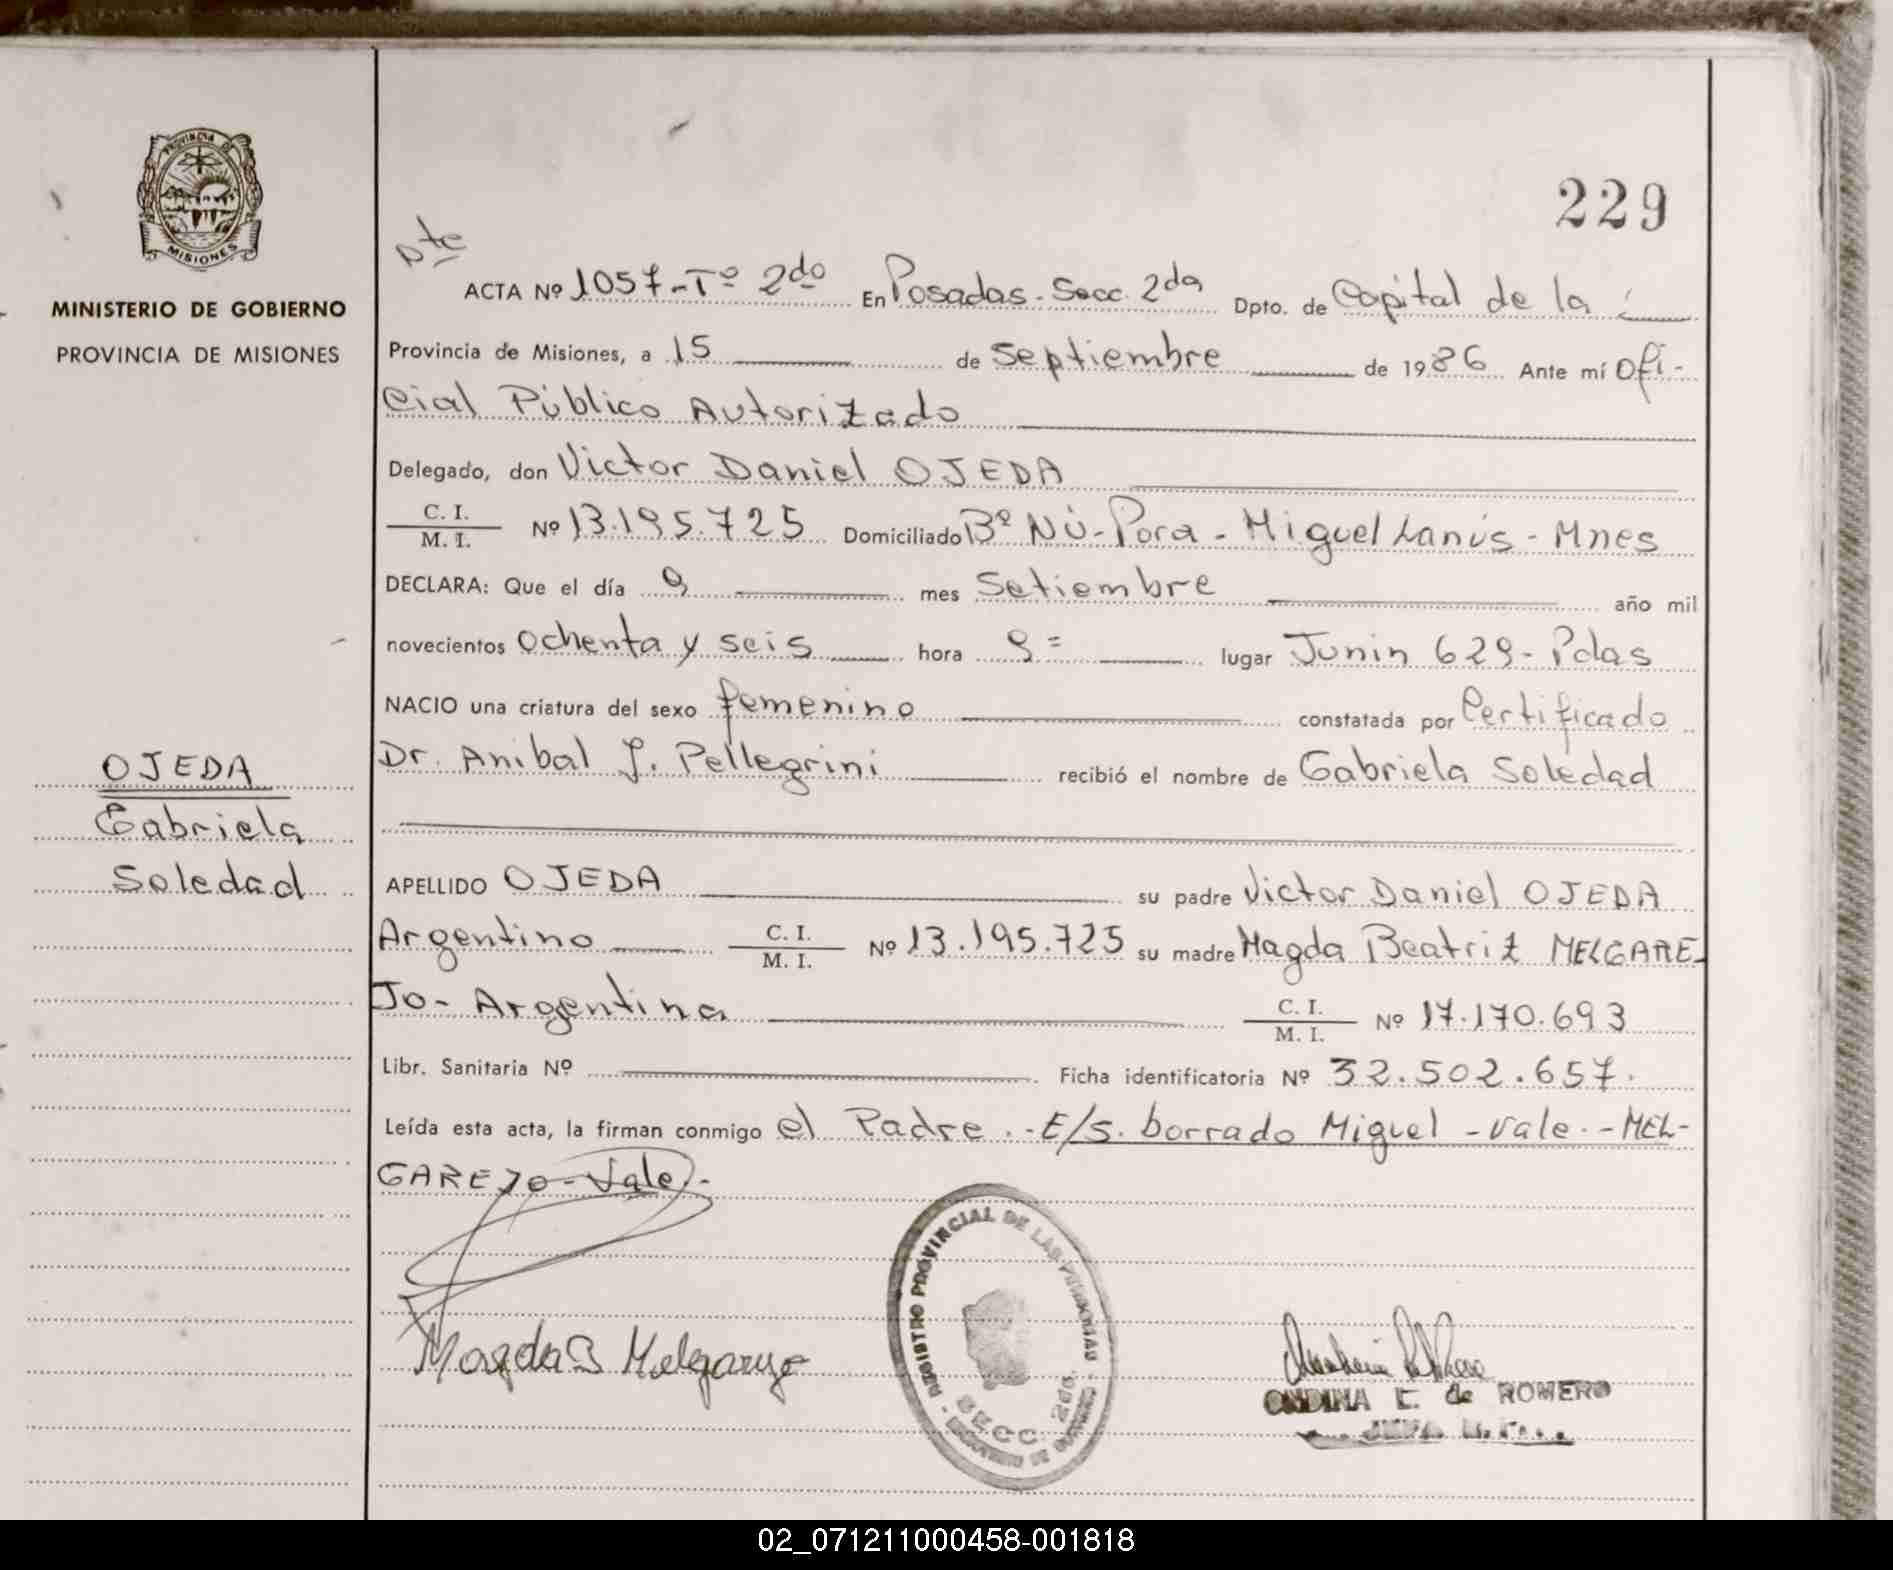 PROVINCIA DE
MISIONES
MINISTERIO DE GOBIERNO
PROVINCIA DE MISIONES
229
Dte
ACTA Nº 1057-Tº 2do En Posadas-Secc. 2da Dpto. de Capital de la
Provincia de Misiones, a 15 de Septiembre de 1986 Ante mí Ofi-
cial Público Autorizado
Delegado, don Victor Daniel OJEDA
C. I.
M. I. Nº 13.195.725 Domiciliado Bº Nú-Pora-Miguel Lanús-Mnes
DECLARA: Que el día 9 mes Setiembre año mil
novecientos Ochenta y seis hora 9= lugar Junin 629-Pdas
NACIO una criatura del sexo femenino constatada por Certificado
Dr. Anibal J. Pellegrini recibió el nombre de Gabriela Soledad
OJEDA
Gabriela
Soledad
APELLIDO OJEDA su padre Victor Daniel OJEDA
Argentino C. I. M. I. Nº 13.195.725 su madre Magda Beatriz MELGARE-
JO-Argentina C. I. M. I. Nº 17.170.693
Libr. Sanitaria Nº Ficha identificatoria Nº 32.502.657.
Leída esta acta, la firman conmigo el Padre.-E/s. borrado Miguel-Vale.-MEL-
GAREJO-Vale-
REGISTRO PROVINCIAL DE LAS PERSONAS
SECC. 2da.
Magda B Melgarejo
ONDINA E. de ROMERO
02_071211000458-001818